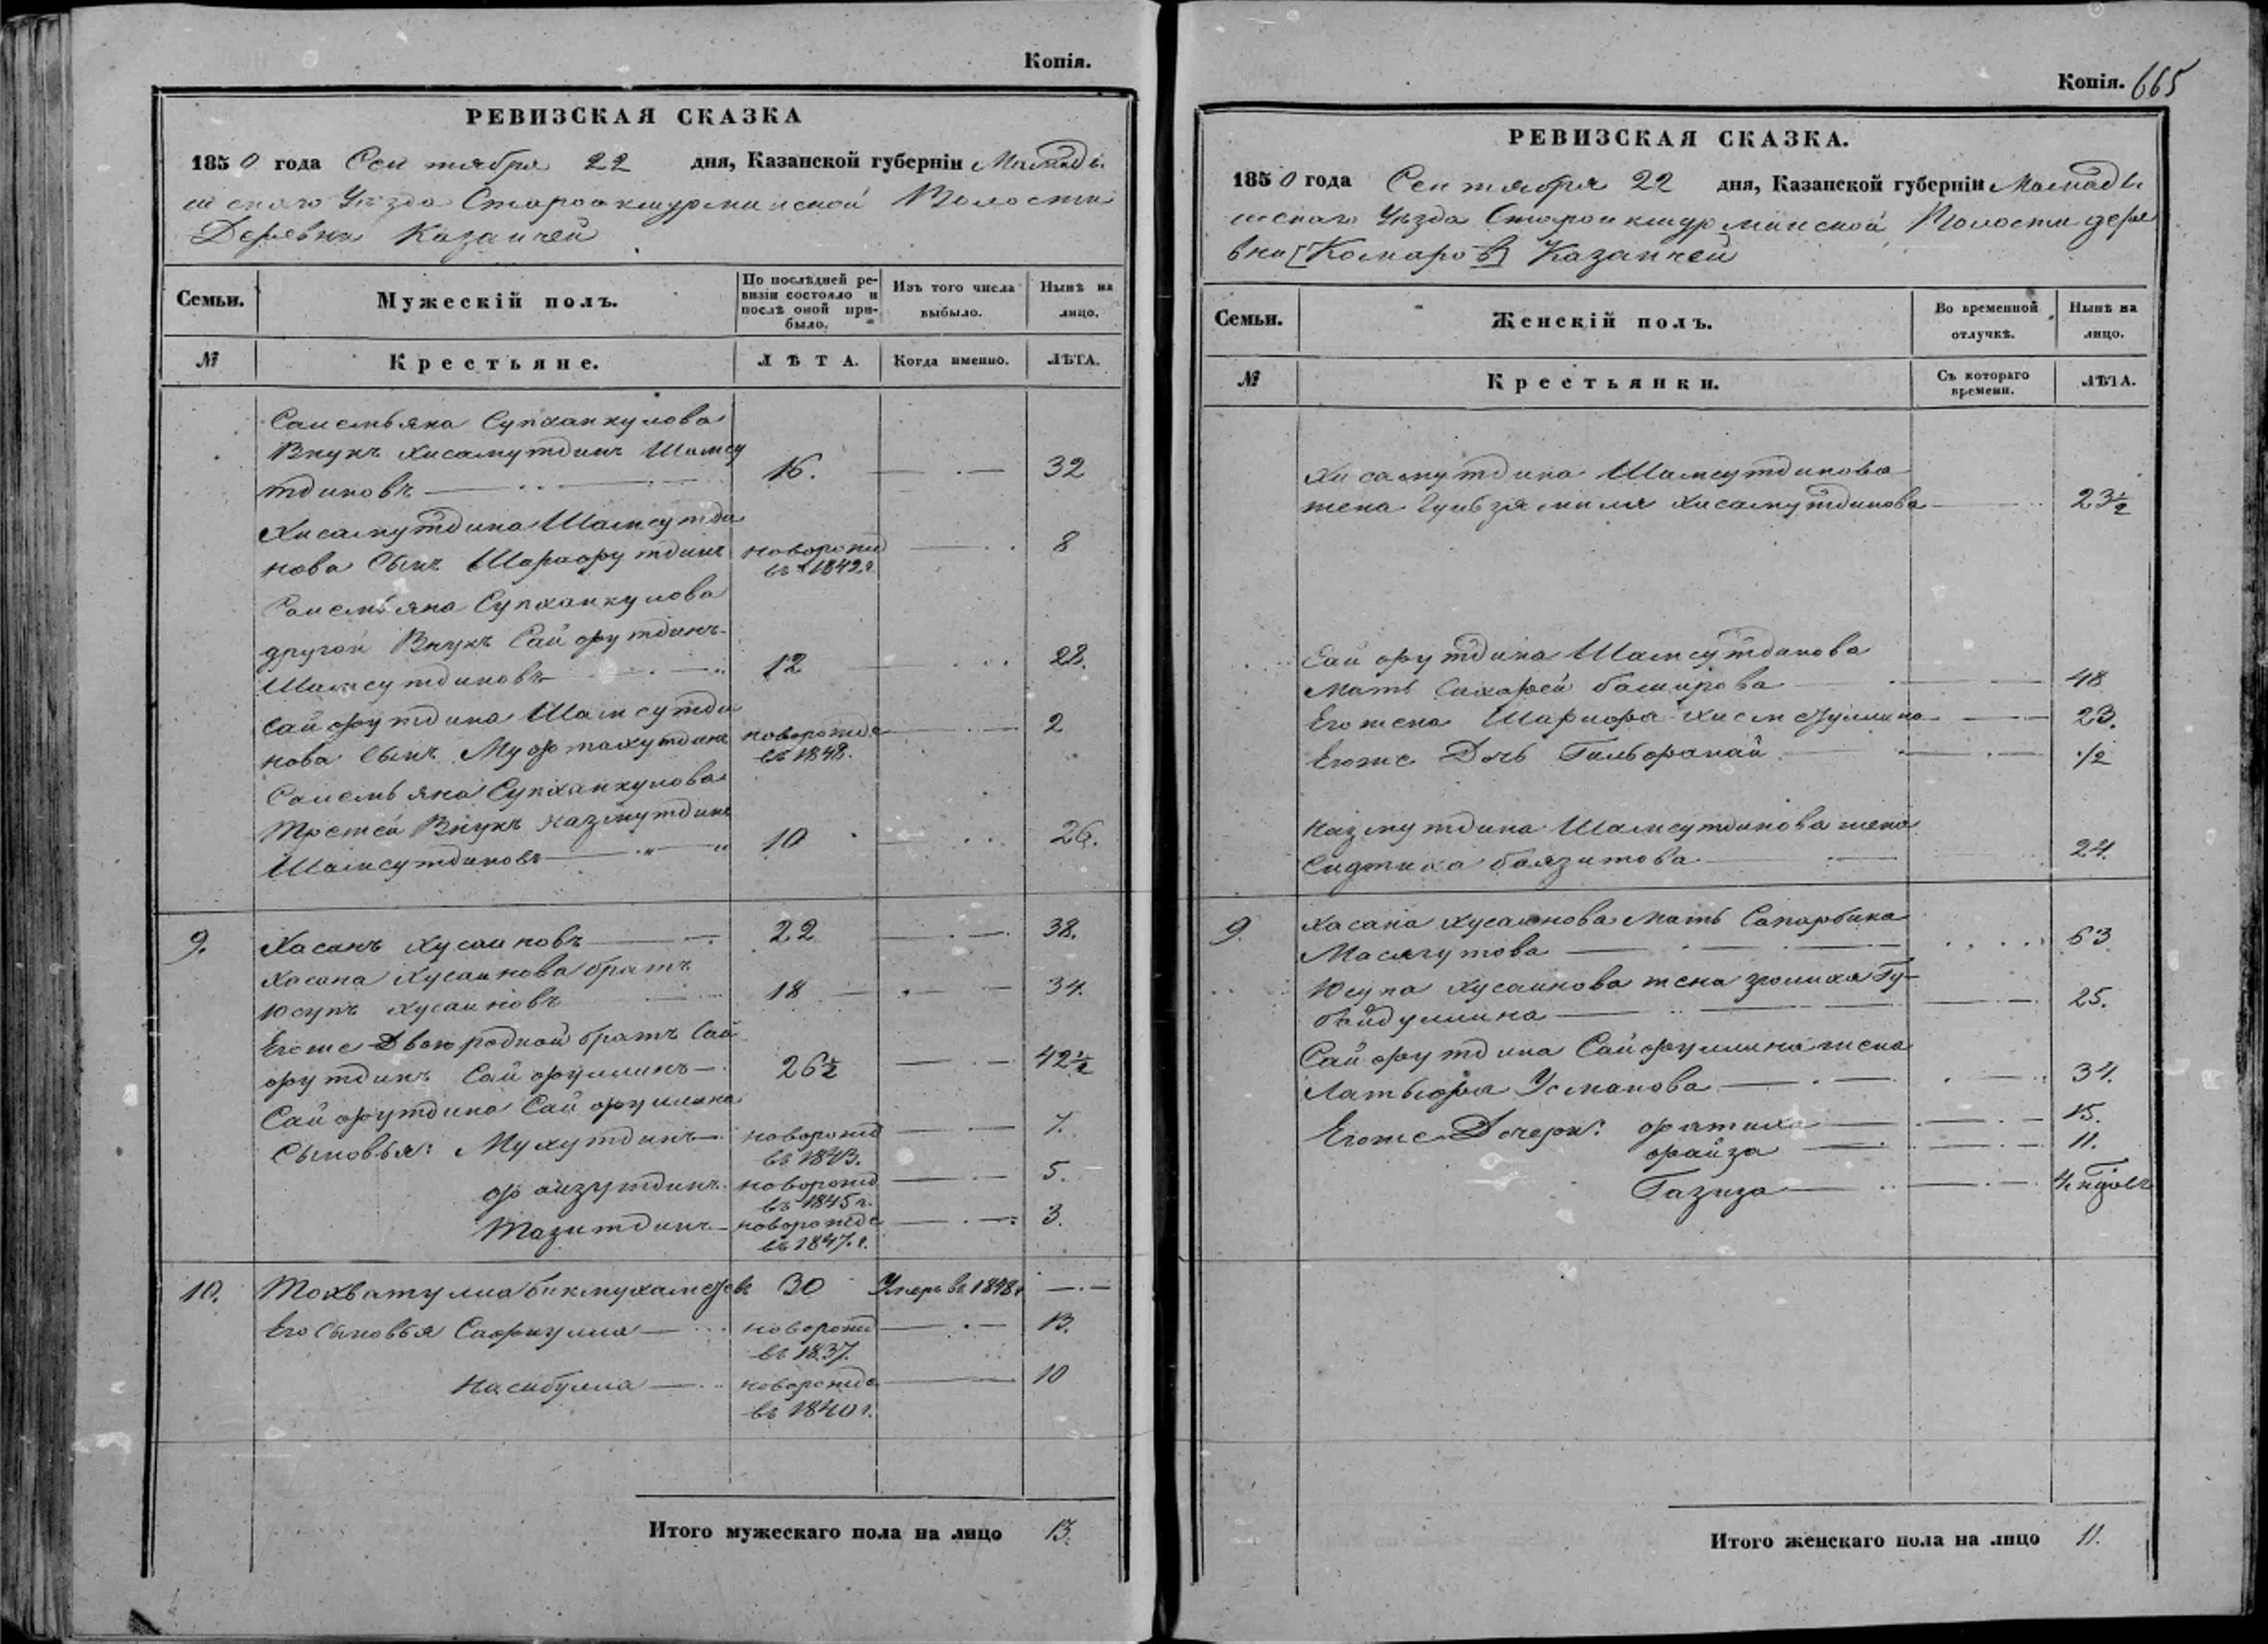 Копія.
РЕВИЗСКАЯ СКАЗКА
1850 года Сентября 22 дня, Казанской губерніи Мамады
шскаго Уѣзда Староакшурминской Волости
Деревни Казаичей
Семьи.
Мужескій полъ.
По послѣдней ре-
визіи состояло и
послѣ оной при-
было.
Изъ того числа
выбыло.
Нынѣ на
лицо.
№
Крестьяне.
ЛѢТА.
Когда именно.
ЛѢТА.
Супханкулова
Внукъ Хисамутдинъ Шамсу
тдиновъ 16. 32
Хисамутдина Шамсутди
нова сынъ Шарафутдинъ новорожд 8
въ 1842 г.
Супханкулова
другой Внукъ Сайфутдинъ
Шамсутдиновъ 12 28.
Сайфутдина Шамсутди
нова сынъ Мифтахутдинъ новорожде 2
въ 1848.
Супханкулова
Третей Внукъ Назмутдинъ
Шамсутдиновъ 10 26.
9. Хасанъ Хусаиновъ 22 38.
Хасана Хусаинова братъ
Юсупъ Хусаиновъ 18 34.
Егоже Двоюродной братъ Сай
футдинъ Сайфуллинъ 26½ 42½
Сайфутдина Сайфуллина
Сыновья: Мухутдинъ новорожд 7.
въ 1843.
Файзутдинъ новорожд 5.
въ 1845 г.
Тазитдинъ новорожде 3.
въ 1847. г.
10. Тохватулла Бикмухаметевъ 30 Умеръ въ 1848 г
Его Сыновья Сафиулла новорожд 13.
въ 1837.
Насибулла новорожде 10
въ 1840 г.
Итого мужескаго пола на лицо 13.
Копія. 665
РЕВИЗСКАЯ СКАЗКА.
1850 года Сентября 22 дня, Казанской губерніи Мамады
шскаго Уѣзда Староакшурминской Волости дере
вни [Комаров] Казаичей
Семьи.
Женскій полъ.
Во временной
отлучкѣ.
Нынѣ на
лицо.
№
Крестьянки.
Съ котораго
времени.
ЛѢТА.
Хисамутдина Шамсутдинова
жена Гульзямиля Хисамутдинова 23½
Сайфутдина Шамсутдинова
Мать Баширова 48
Его жена 23.
Егоже Дочь ½
Назмутдина Шамсутдинова жена
Сидтика Баязитова 24.
9. Хасана Хусаинова мать Сапарбика
Масягутова 63
Юсупа Хусаинова жена Зюлиха Гу-
байдуллина 25.
Сайфутдина Сайфуллина жена
Латыфа Усманова 34.
Егоже Дочери: Фатиха 15.
Файза 11.
Газиза
Итого женскаго пола на лицо 11.